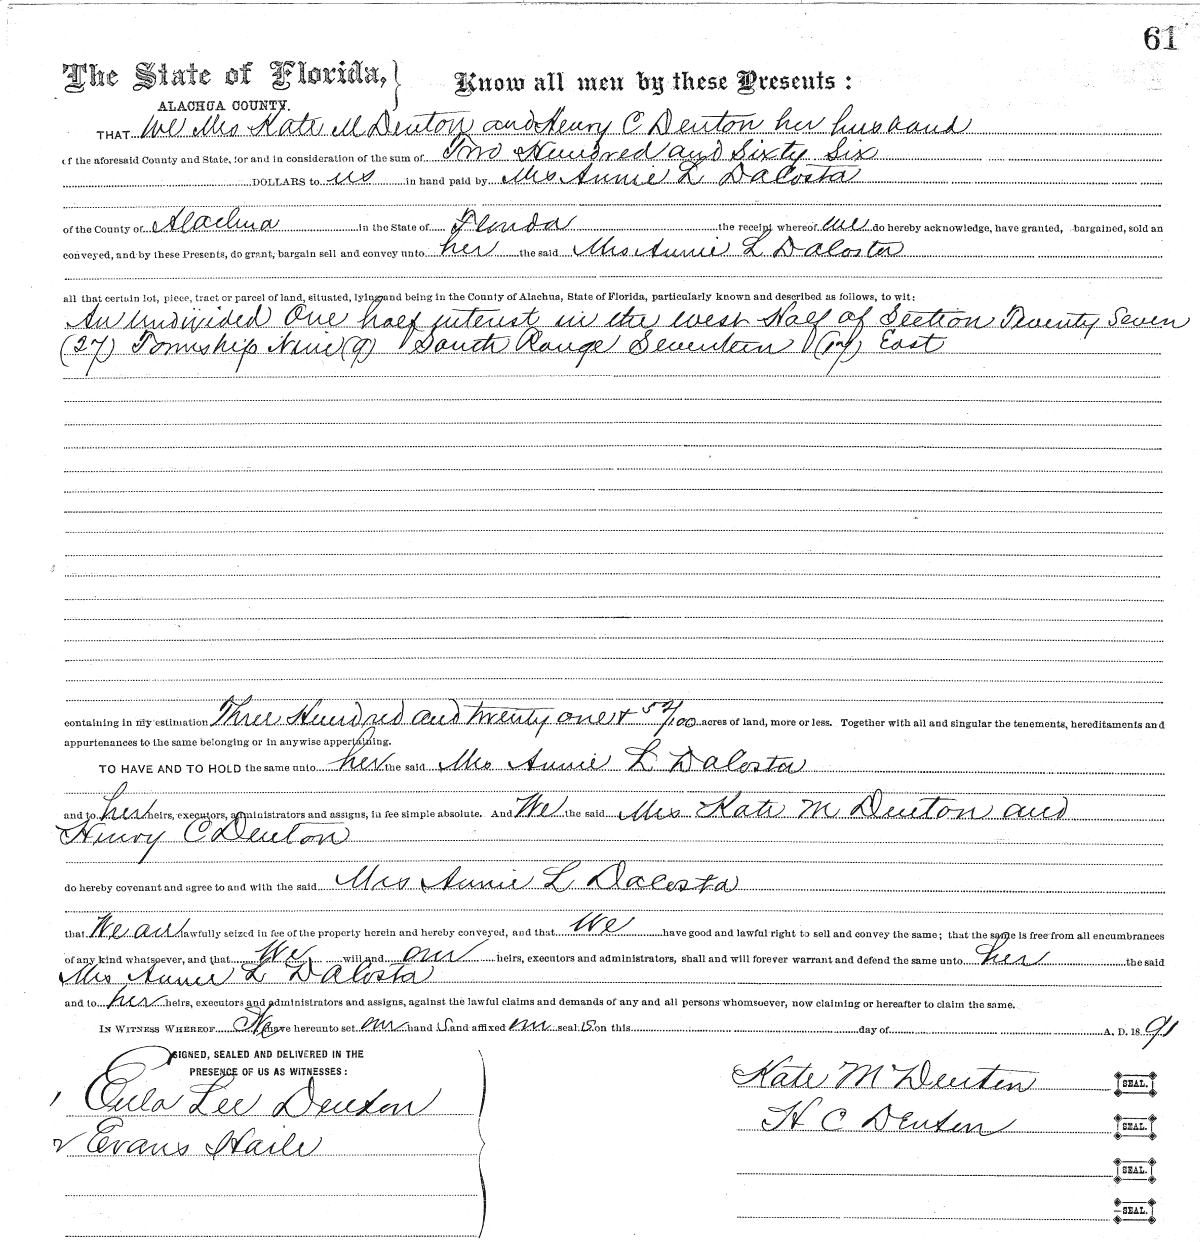 61
The State of Florida,
ALACHUA COUNTY.
Know all men by these Presents:
THAT We Mrs Kate M Denton and Henry C Denton her husband
of the aforesaid County and State, for and in consideration of the sum of Two Hundred and Sixty Six
DOLLARS to us in hand paid by Mrs Annie L DaCosta
of the County of Alachua in the State of Florida the receipt whereof we do hereby acknowledge, have granted, bargained, sold an
conveyed, and by these Presents, do grant, bargain sell and convey unto her the said Mrs Annie L DaCosta
all that certain lot, piece, tract or parcel of land, situated, lying and being in the County of Alachua, State of Florida, particularly known and described as follows, to wit:
An undivided One half interest in the west Half of Section Twenty Seven
(27) Township Nine (9) South Range Seventeen (17) East
containing in my estimation Three Hundred and twenty one & 52/100 acres of land, more or less. Together with all and singular the tenements, hereditaments and
appurtenances to the same belonging or in anywise appertaining.
TO HAVE AND TO HOLD the same unto her the said Mrs Annie L DaCosta
and to her heirs, executors, administrators and assigns, in fee simple absolute. And We the said Mrs Kate M Denton and
Henry C Denton
do hereby covenant and agree to and with the said Mrs Annie L Dacosta
that We are lawfully seized in fee of the property herein and hereby conveyed, and that We have good and lawful right to sell and convey the same; that the same is free from all encumbrances
of any kind whatsoever, and that We will and our heirs, executors and administrators, shall and will forever warrant and defend the same unto her the said
Mrs Annie L DaCosta
and to her heirs, executors and administrators and assigns, against the lawful claims and demands of any and all persons whomsoever, now claiming or hereafter to claim the same.
IN WITNESS WHEREOF We have hereunto set our hand s and affixed our seal s on this day of A. D. 18 91
SIGNED, SEALED AND DELIVERED IN THE
PRESENCE OF US AS WITNESSES:
1 Eula Lee Denton
2 Evans Haile
Kate M Denton SEAL.
H C Denton SEAL.
SEAL.
SEAL.